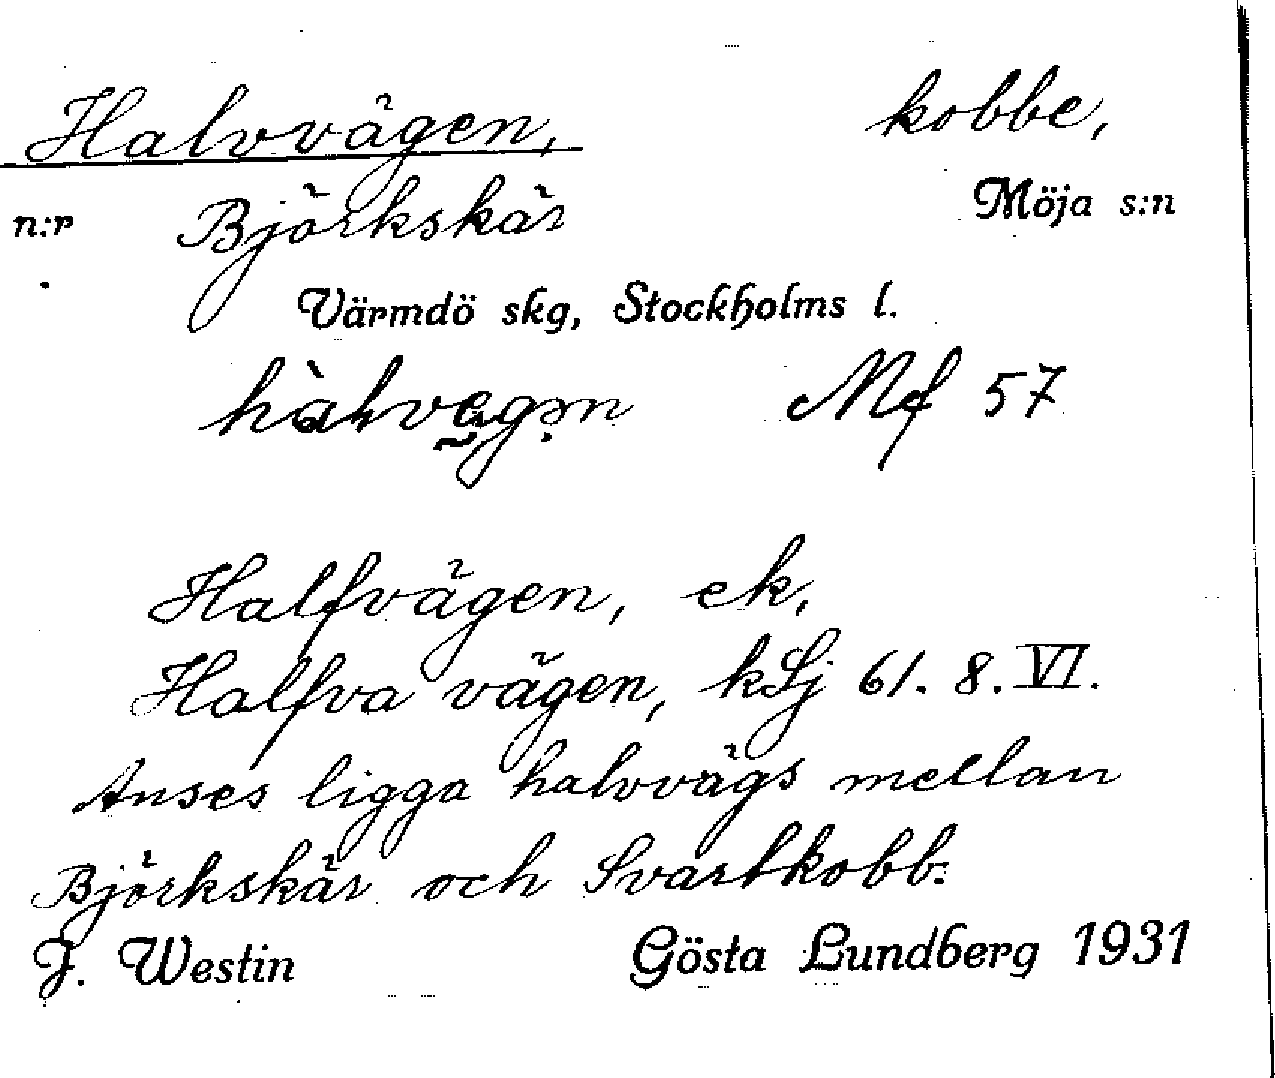 Halvvägen, kobbe,
n:r Björkskär Möja s:n
Värmdö skg, Stockholms l.
hàlvęgən Mf 57
Halfvägen, ek,
Halfva vägen, kSj 61. 8. VI.
Anses ligga halvvägs mellan
Björkskär och Svartkobb.
J. Westin Gösta Lundberg 1931